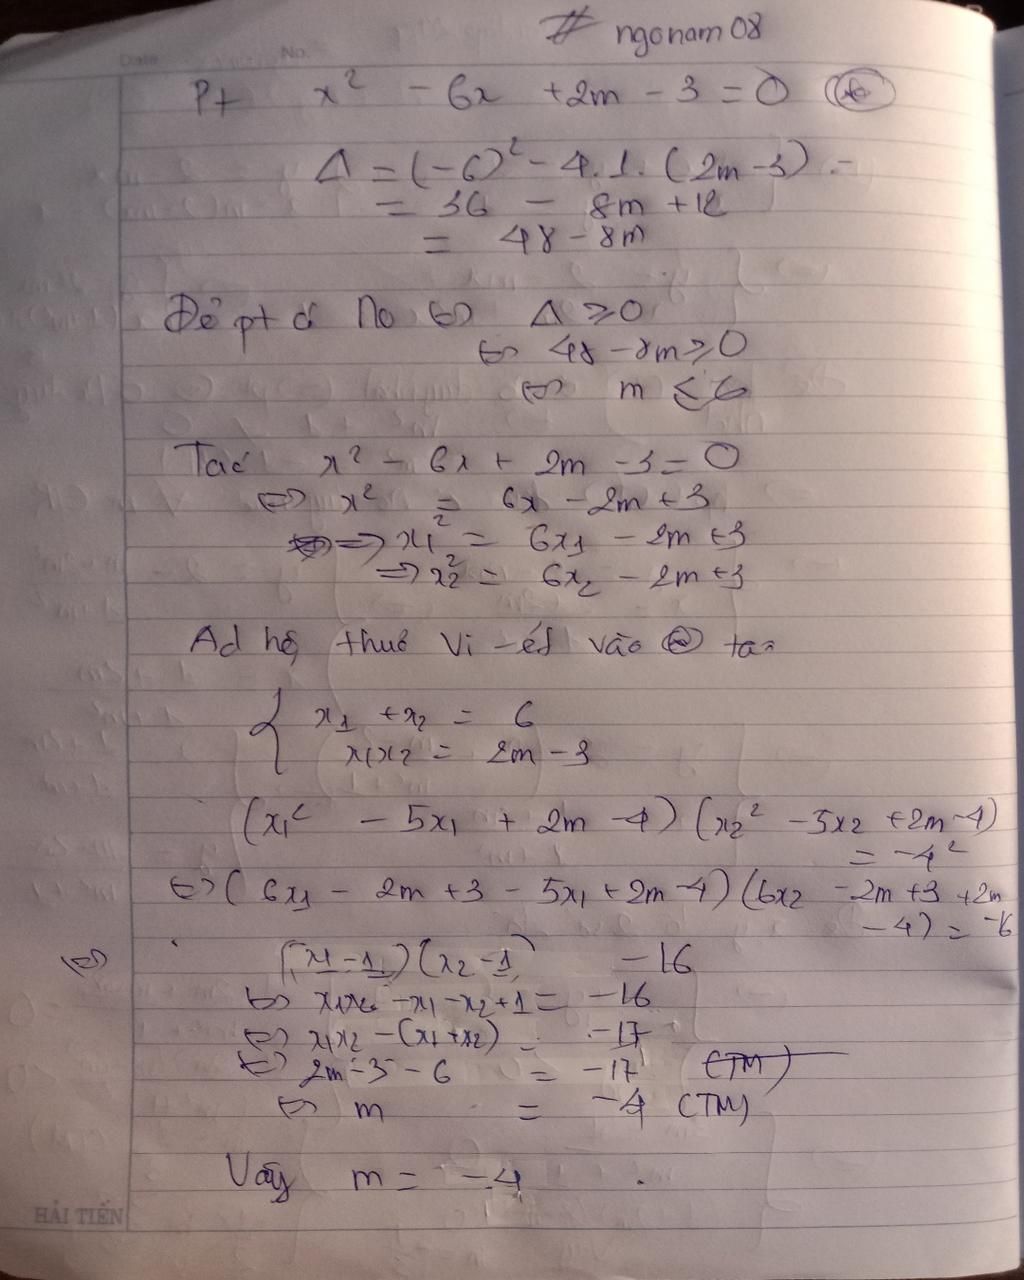 # ngonam08
Date No.
Pt x² - 6x + 2m - 3 = 0 (*)
Δ = (-6)² - 4.1.(2m-3) =
= 36 - 8m + 12
= 48 - 8m
Để pt có No ⇔ Δ ≥ 0
⇔ 48 - 8m ≥ 0
⇔ m ≤ 6
Ta có x² - 6x + 2m - 3 = 0
⇔ x² = 6x - 2m + 3
⇒ x₁² = 6x₁ - 2m + 3
⇒ x₂² = 6x₂ - 2m + 3
Ad hệ thức Vi-ét vào (*) ta
{ x₁ + x₂ = 6
x₁x₂ = 2m - 3
(x₁² - 5x₁ + 2m - 4)(x₂² - 5x₂ + 2m - 4)
= -4²
⇔ (6x₁ - 2m + 3 - 5x₁ + 2m - 4)(6x₂ - 2m + 3 + 2m
- 4) = -16
⇔ (x₁ - 1)(x₂ - 1) -16
⇔ x₁x₂ - x₁ - x₂ + 1 = -16
⇔ x₁x₂ - (x₁ + x₂) = -17
⇔ 2m - 3 - 6 = -17 (TM)
⇔ m = -4 (TM)
Vậy m = -4.
HẢI TIẾN